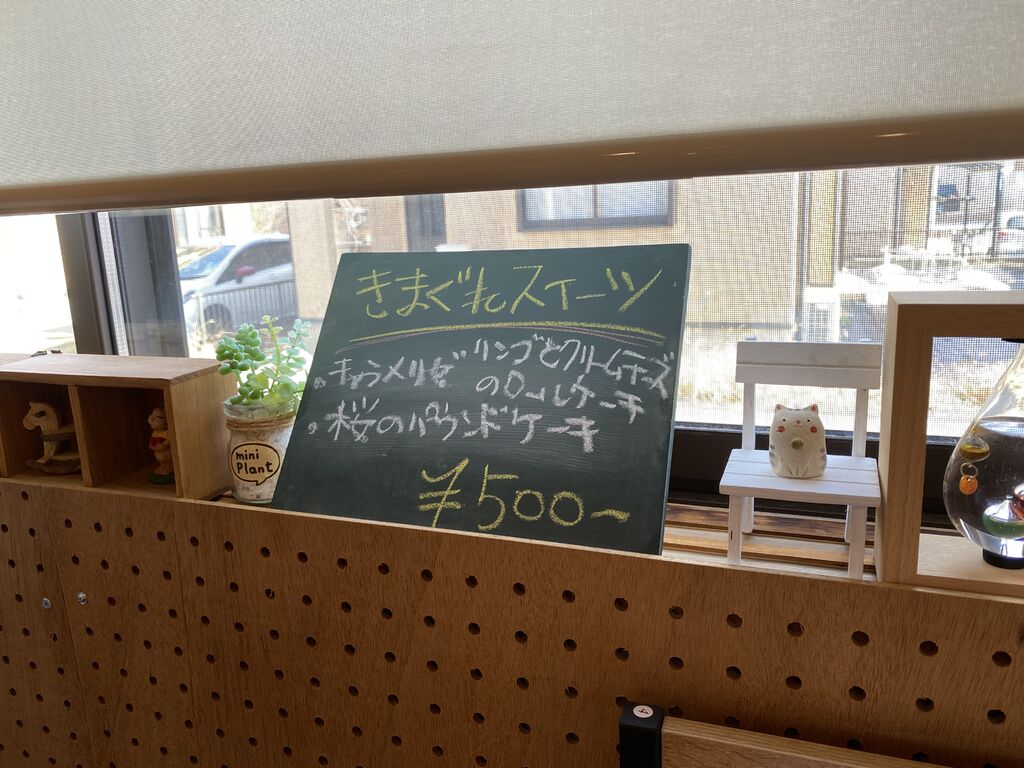 きまぐれスイーツ
。キャラメリゼリンゴとクリームチーズ
のロールケーキ
。桜のパウンドケーキ
¥500~
mini
Plant